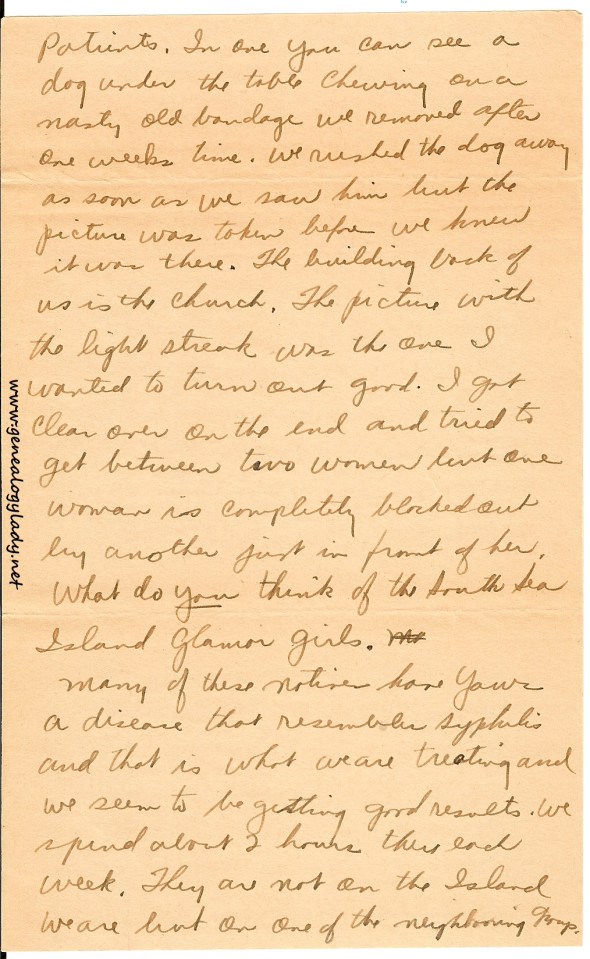 Patients. In one you can see a
dog under the table chewing on a
nasty old bandage we removed after
one weeks time. We rushed the dog away
as soon as we saw him but the
picture was taken before we knew
it was there. The building back of
us is the church. The picture with
the light streak was the one I
wanted to turn out good. I got
clear over on the end and tried to
get between two women but one
woman is completely blocked out
by another just in front of her.
What do you think of the South Sea
Island Glamor Girls.
Many of these natives have Yaws
a disease that resembles syphilis
and that is what we are treating and
we seem to be getting good results. We
spend about 2 hours there each
week. They are not on the Island
we are but on one of the neighboring Group.
www.genealogylady.net